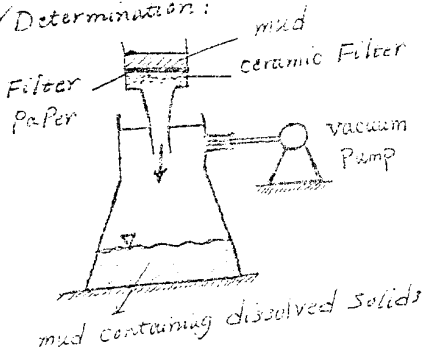 Determination:
mud
ceramic Filter
Filter
Paper
vacuum
Pump
mud containing dissolved solids